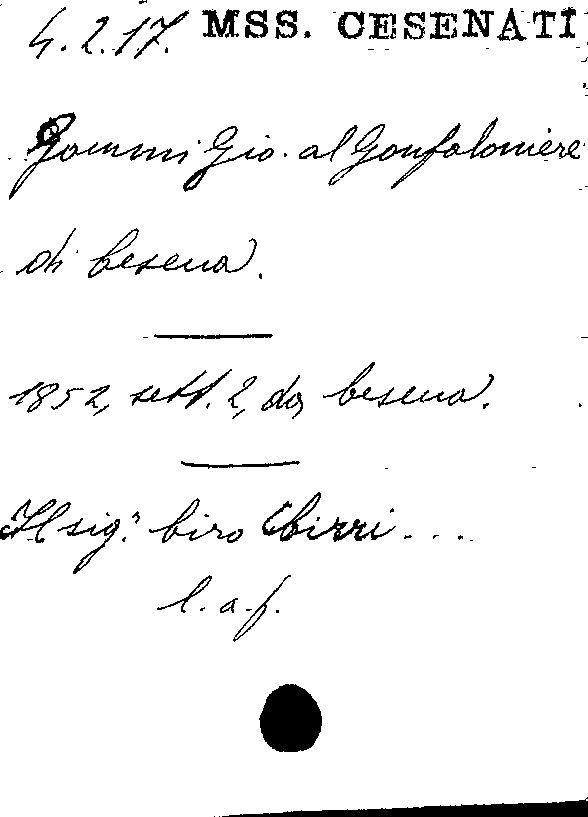 4.2.17. MSS. CESENATI
Gommi Gio. al Gonfaloniere
di Cesena.
1852, sett. 2, da Cesena.
"Il sig.r Ciro Cbirri...
l. a. f.